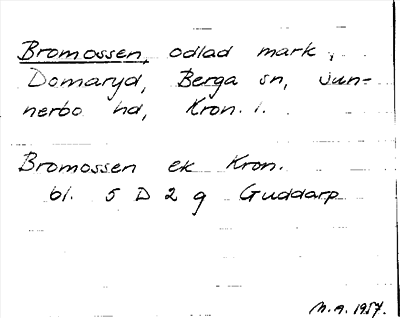 Bromossen, odlad mark,
Domaryd, Berga sn, Sun-
nerbo hd, Kron. l.
Bromossen ek Kron.
bl. 5 D 2 g Guddarp
M.A. 1957.